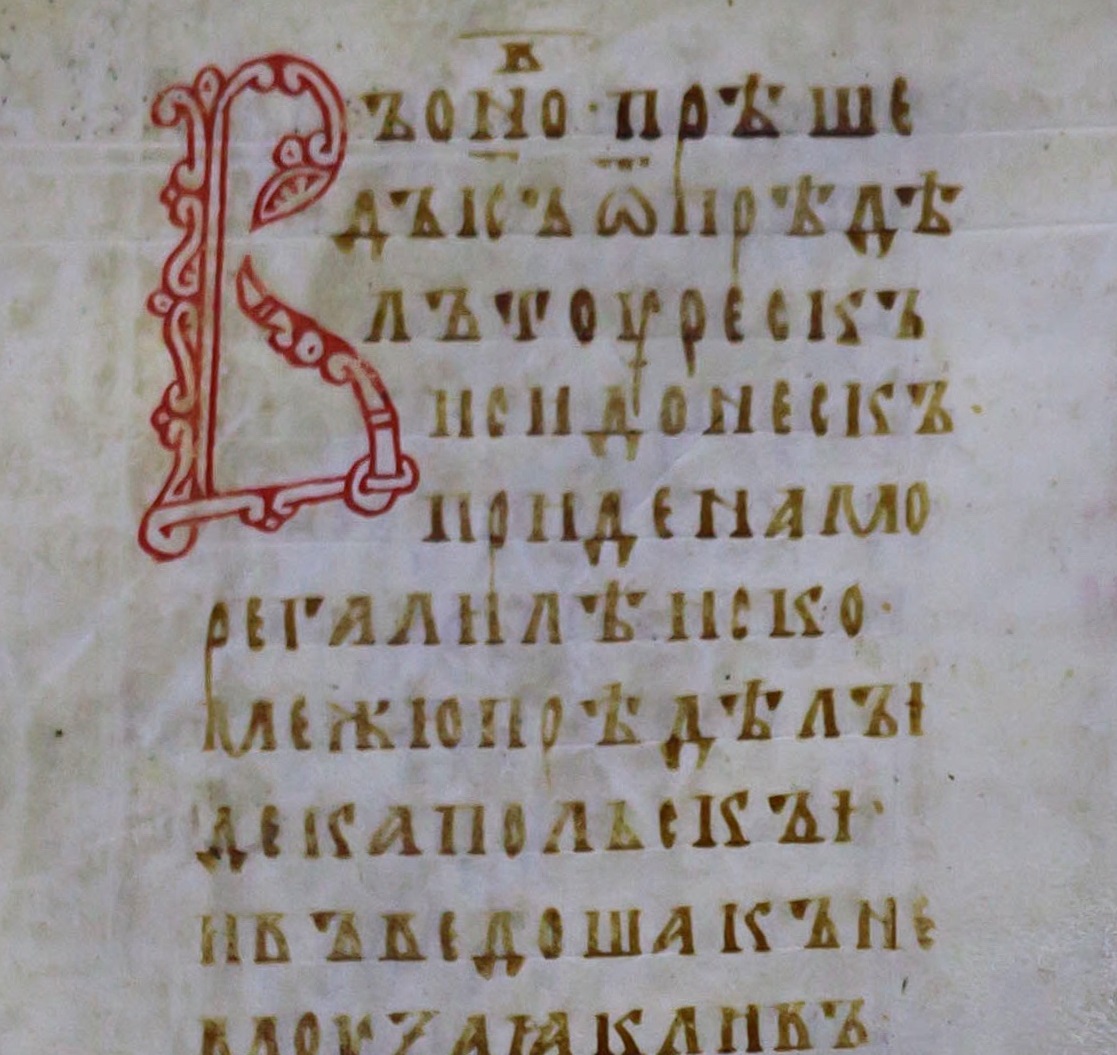 в
Въоно·прѣше
дъісъѿпрѣдѣ
лътоурескъ
исидонескъ·
приденамо
регалилѣиско·
имежюпрѣдѣлъі
декаполъскъі·
ивъведошакъне
моузаꙗкливъ